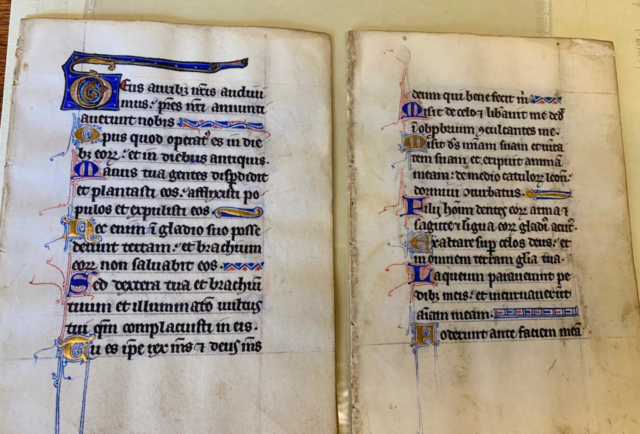 Eus aurib; nr̃is audiui
mus: pr̃es nr̃i annunti
auerunt nobis.
Opus quod operat9 es in die
b; eoꝝ: et in diebus antiquis.
Manus tua gentes disꝑdidit
et plantasti eos: afflixisti po
pulos et expulisti eos.
Nec enim ĩ gladio suo posse
derunt terram: et brachium
eoꝝ non saluabit eos.
Sed dextera tua et brachiũ
tuum et illuminatio uultus
tui qm̃ complacuisti in eis.
Tu es ip̃e rex m̃s ⁊ deus m̃s
deum qui bene fecit m̃
Misit de celo ⁊ lib̾auit me ded̾
ĩ obp̾brium ꝯculcantes me.
Misit ds̃ miam̃ suam et uita
tem suam et eripuit animã
meam: de medio catuloꝝ leon̾
dormiui ↄturbatus.
Filii hoim̃ dentes eoꝝ arma ⁊
sagitte ⁊ lĩgua eoꝝ gladi9 acut9.
Exaltare sup̾ celos deus: et
in omnem terram gl̃ia tua.
Laqueum parauerunt pe
dib; meis: et incuruauerũt
aĩam meam.
Foderunt ante faciem meã